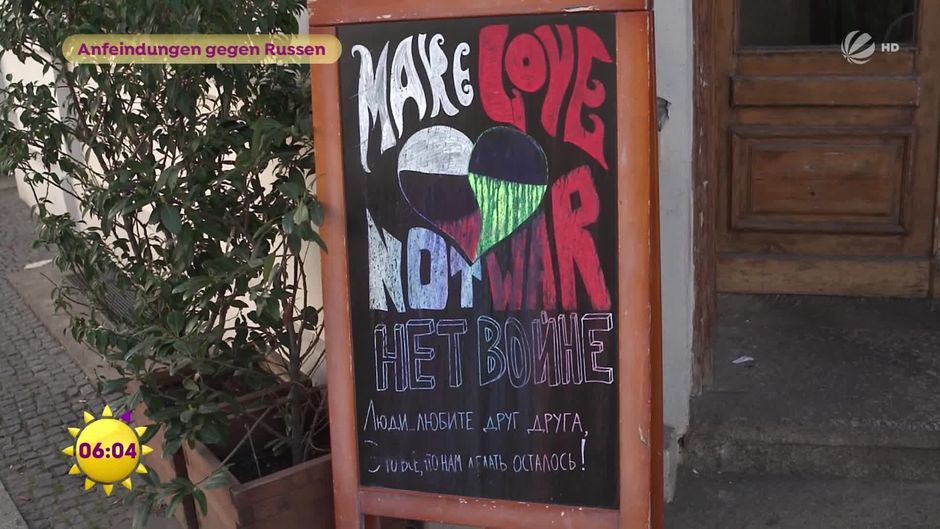 Anfeindungen gegen Russen
HD
MAKE LOVE
NOT WAR
НЕТ ВОЙНЕ
Люди любите друг друга,
Это всё, что нам делать осталось!
06:04